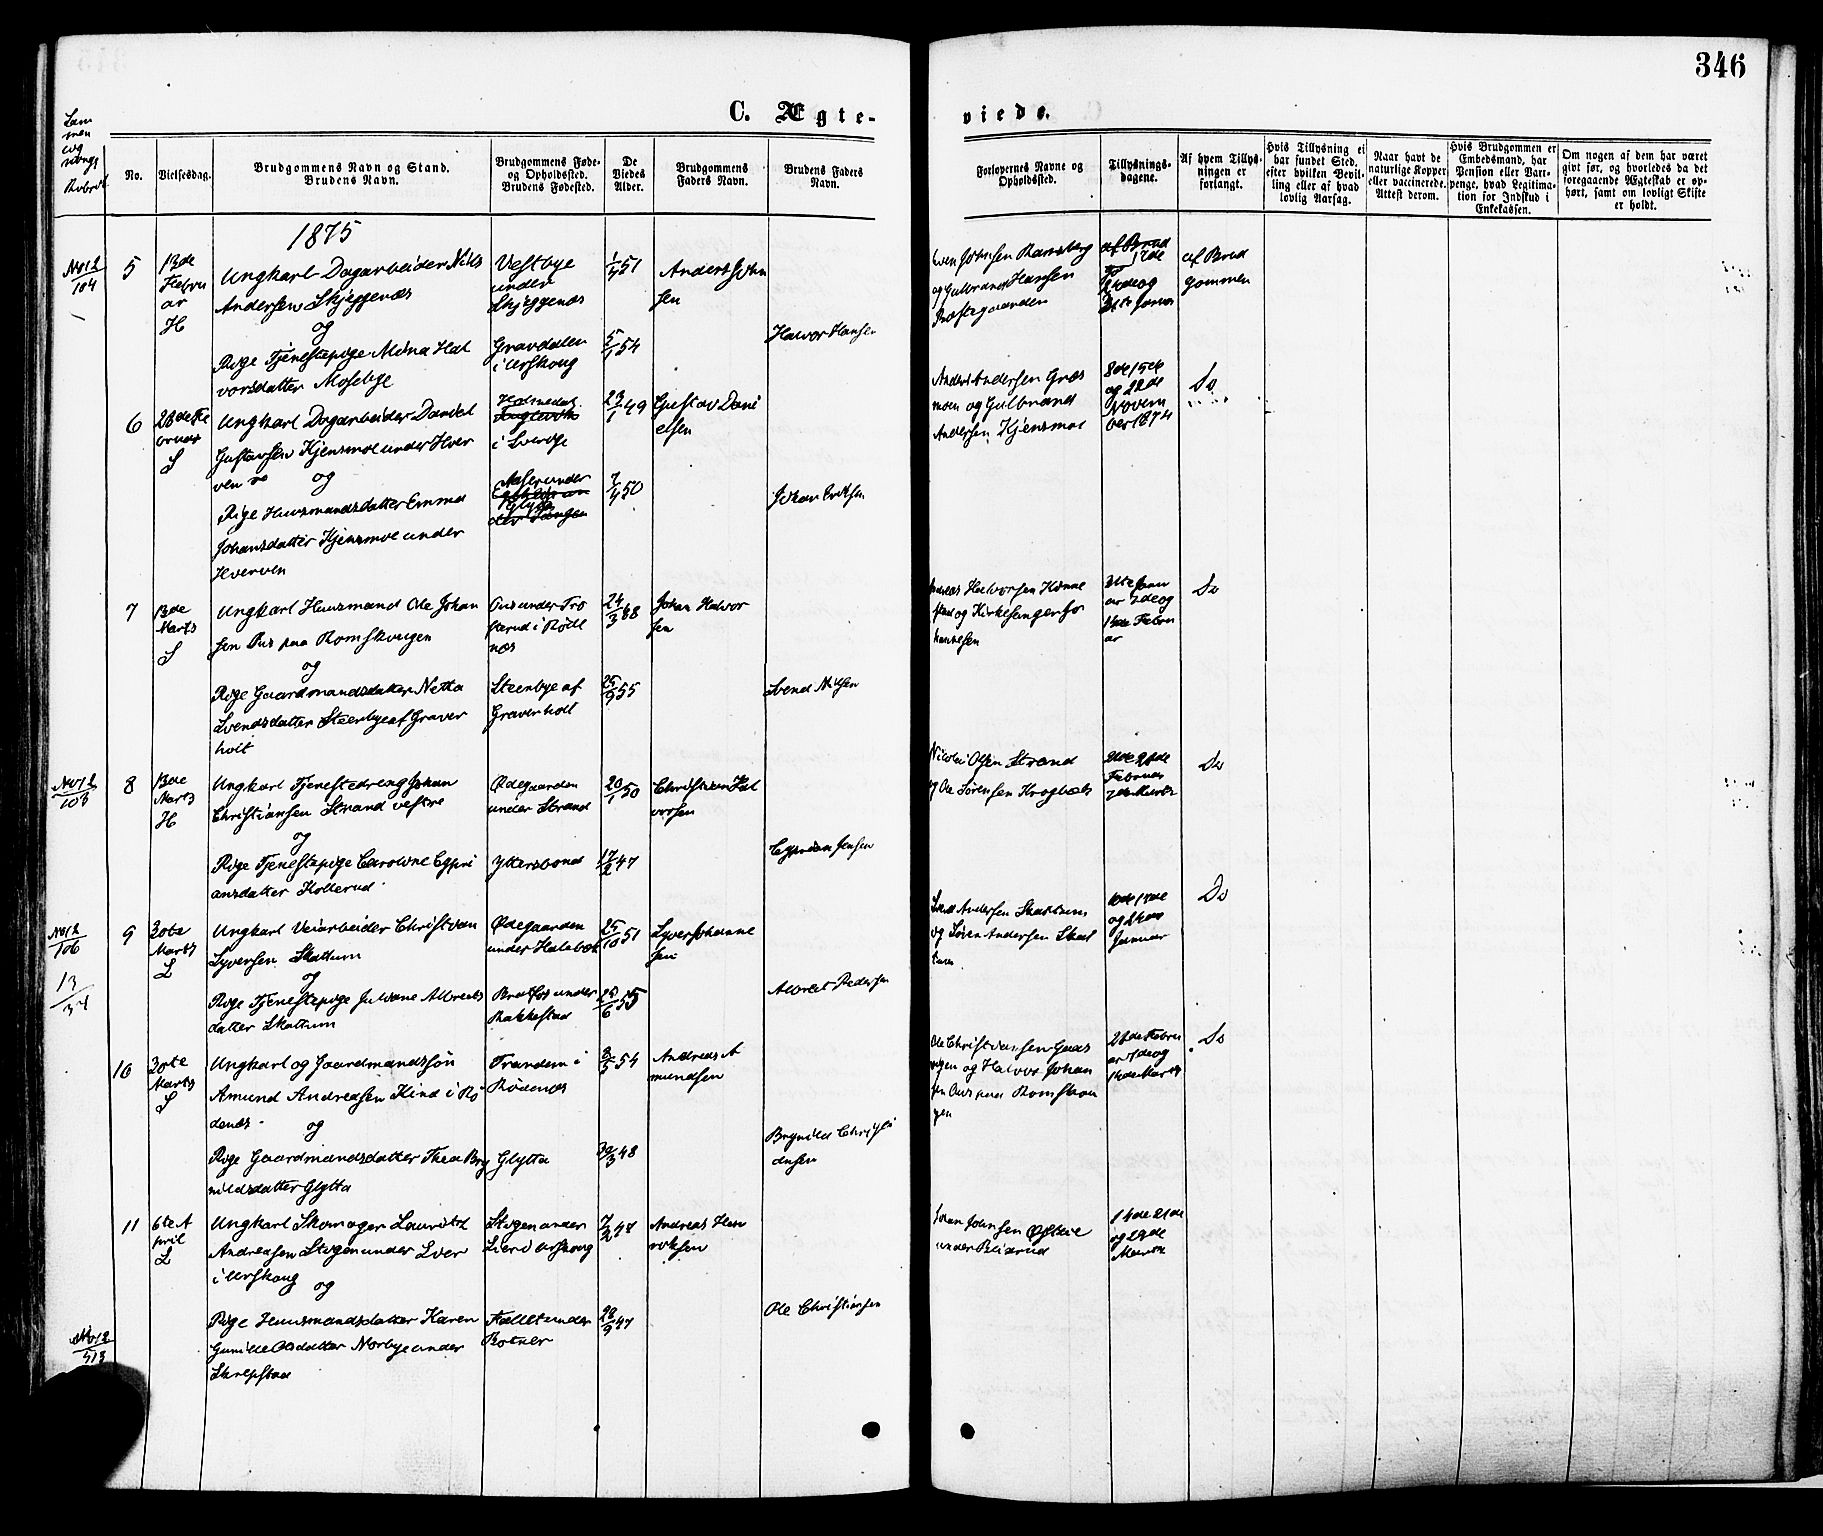 346
C. Ægte-
viede.
No.
Vielsesdag.
Brudgommens Navn og Stand.
Brudens Navn.
Brudgommens Føde-
og Opholdssted.
Brudens Fødested.
De
Viedes
Alder.
Brudgommens
Faders Navn.
Brudens Faders
Navn.
Forlovernes Navne og
Opholdssted.
Tillysnings-
dagene.
Af hvem Tillys-
ningen er
forlangt.
Hvis Tillysning ei
har fundet Sted,
efter hvilken Bevil-
ling eller af hvad
lovlig Aarsag.
Naar havt de
naturlige Kopper
eller vaccinerede.
Attest derom.
Hvis Brudgommen er
Embedsmand, har
Pension eller Vart-
penge, hvad Legitima-
tion for Indskud i
Enkekassen.
Om nogen af dem har været
givt før, og hvorledes da det
foregaaende Ægteskab er op-
hørt, samt om lovligt Skifte
er holdt.
1875
No 12
104
5
13de
Februar
H
Ungkarl Dagarbeider Nils
Andersen Skjeggenæs
og
Pige Tjenestepige Mina Hal
vorsdatter Mosebye
Vestbye
under
Skjeggenæs
Gravdalen
i Urskoug
1/4 51
5/1 54
Anders John
sen
Halvor Hansen
og Gulbrand Hansen
Prestegaarden
af Brud
gommen
6
28de Fe
bruar
S
Ungkarl Dagarbeider Daniel
Gustavsen Kjensmoe under Hver
ven
og
Pige Huusmandsdatter Emma
Johansdatter Kjensmoe under
Hverven
Holmedal
i Sverige
23/1 49
7/4 50
Gustav Dani
elsen
Johan Eriksen
Anders Andersen Græs
moen og Gulbrand
Andersen Kjensmoe
8de 15de
og 22de
Novem
ber 1874
Do
7
13de
Marts
S
Ungkarl Huusmand Ole Johan
sen Ous paa Romskougen
og
Pige Gaardmandsdatter Netta
Svendsdatter Steenbye af Graver
holt
Ous under Tro
sterud i Rød
næs
Steenbye af
Graverholt
24/3 48
25/9 55
Johan Halvor
sen
Svend Nilsen
og Kirkesanger Jo
hannesen
31te Janu
ar 7de og
14de Febru
ar
Do
No 12
103
8
13de
Marts
H
Ungkarl Tjenestedreng Johan
Christiansen Strand vestre
og
Pige Tjenestepige Caroline Cypri
ansdatter Kollerud
Ødegaarden
under Strand
Ytterbond
20/1 50
17/2 47
Christian Hal
vorsen
Cyprian Jensen
Nicolai Olsen Strand
og Ole Sørensen Krogbæk
21de 28de
Februar
7de Marts
Do
No 12
106
13
34
9
30te
Marts
L
Ungkarl Veiarbeider Christian
Syversen Skattum
og
Pige Tjenestepige Juliane Albrets
datter Skattum
Ødegaarden
under Holebek
Bratfos under
Rakkestad
25/10 51
25/6 55
Syver Johanne
sen
Albret Pedersen
og Søren Andersen Skat
tum
10de 17de
og 24de
Januar
Do
10
30te
Marts
S
Ungkarl og Gaardmandssøn
Amund Andreasen Kind i Rø
denæs
og
Pige Gaardmandsdatter Thea Bry
nildsdatter Glytta
Trandem i
Rødenæs
Glytta
8/5 54
30/3 48
Andreas A
mundsen
Brynild Christi
ansen
Ole Christiansen Gaas
vigen og Halvor Johan
sen Ous paa Romskou
gen
28de Febru
ar 7de og
14de Marts
Do
11
6te A
pril
L
Ungkarl Skomager Lauritz
Andreasen Stigen under Lier
i Urskoug
og
Pige Huusmandsdatter Karen
Gunille Olsdatter Norbye under
Skrepstad
Stigen under
Lier i Urskoug
Fallet under
Botner
7/2 47
28/9 47
Andreas Hen
riksen
Ole Christiansen
Johan Johnsen Østbye
14de 21de
og 28de
Marts
No 12
513